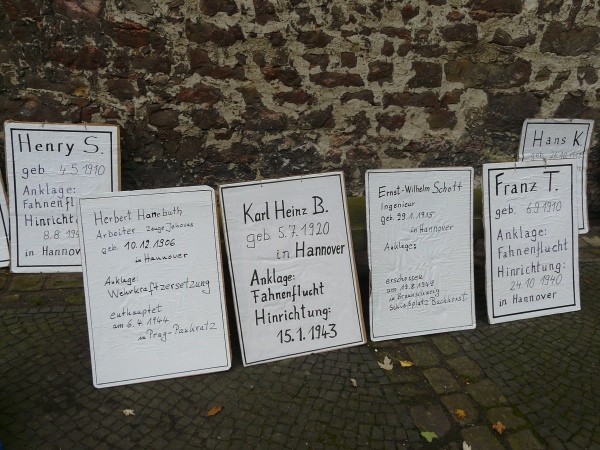 Henry S.
geb. 4.5.1910
Anklage:
Fahnenfl
Hinricht
8.8.19
in Hann
Herbert
Arbeiter Zeuge Jehovas
geb. 10.12.1906
in Hannover
Anklage:
Wehrkraftzersetzung
enthauptet
am 6.4.1944
in Prag-Pankratz
Karl Heinz B.
geb 5.7.1920
in Hannover
Anklage:
Fahnenflucht
Hinrichtung:
15.1.1943
Ernst-Wilhelm Schott
Ingenieur
geb. 29.1.1915
in Hannover
Anklage:
erschossen
in Braunschweig
Schießplatz Buchhorst
Hans K
geb.
Franz T.
geb. 6.9.1910
Anklage:
Fahnenflucht
Hinrichtung:
24.10.1940
in Hannover